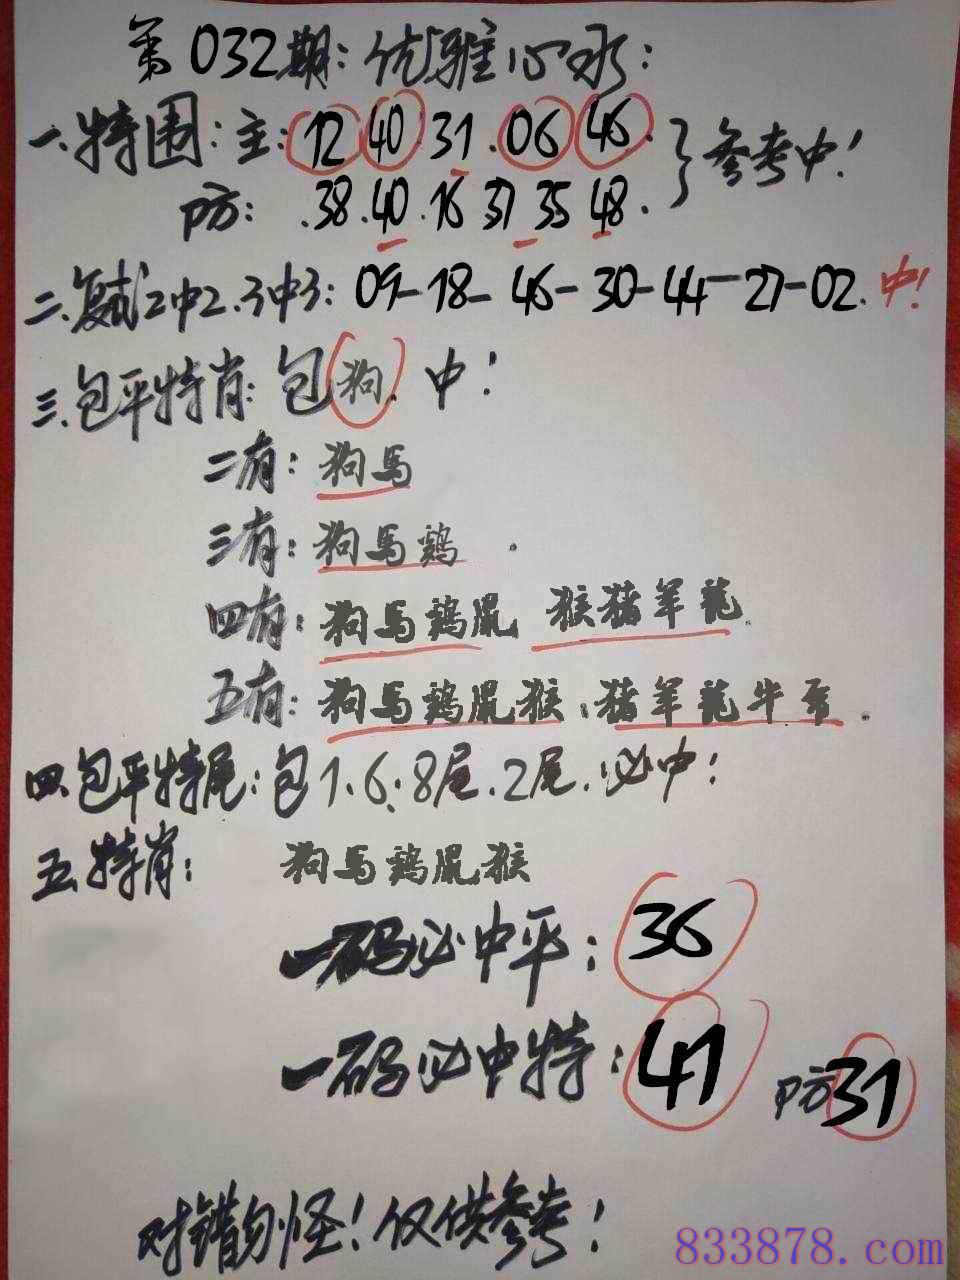 第032期:优雅心水:
一.特围:主:12 40.31.06 46.
防: .38.40.16 37 35 48. }参考中!
二.复试2中2.3中3: 09-18-46-30-44-27-02.中!
三.包平特肖:包狗.中!
二有:狗马
三有:狗马鸡.
四有:狗马鸡鼠 猴猪羊龍.
五有:狗马鸡鼠猴:猪羊龍牛.
四.包平特尾:包1.6.8尾.2尾.必中!
五.特肖: 狗马鸡鼠猴
一码必中平:36
一码必中特:41 防31
对错勿怪!仅供参考!
833878.com